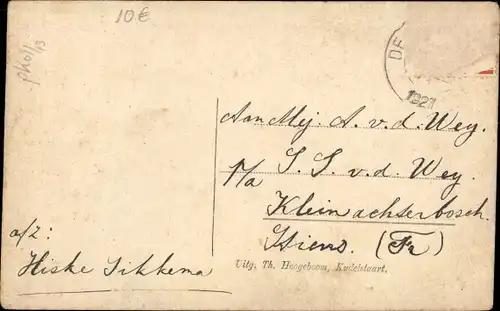 10€
DE
1921
Aan Mej. A. v. d. Wey.
p/a S. S. v. d. Wey.
Klein achterbosch.
Hiens. (Fr)
a/z:
Hiske Sikkema
Uitg. Th. Hoogeboom, Kudelstaart.